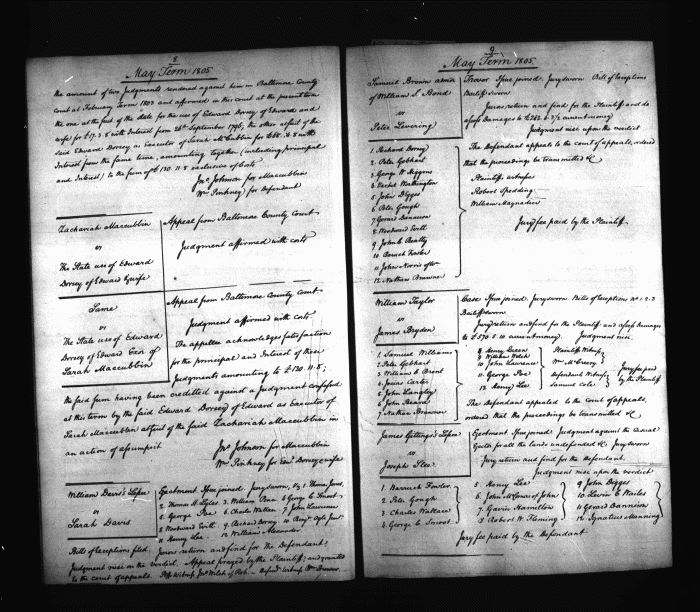 8
May Term 1805
the amount of two Judgments rendered against him in Baltimore County
Court at February Term 1803 and affirmed in this court at the present term
the one at the suit of the State for the use of Edward Dorsey of Edward and
wife for £17.3.8 with Interest from 26th September 1796, the other at suit of the
said Edward Dorsey as Executor of Sarah McCubbin for with
Interest from the same time, amounting together (including principal
and Interest) to the sum of £130.11.8 exclusive of Costs
Jno. Johnson for Maccubbin
Wm. Pinkney for Defendant
Zachariah Maccubbin
vs
The State use of Edward
Dorsey of Edward & wife
Appeal from Baltimore County Court
Judgment affirmed with costs
Same
vs
The State use of Edward
Dorsey of Edward Exr. of
Sarah Maccubbin
Appeal from Baltimore County Court
Judgment affirmed with costs
The appellee acknowledges satisfaction
for the principal and Interest of these
Judgments amounting to £130.11.8;
the said sum having been credited against a Judgment confessed
at this term by the said Edward Dorsey of Edward as Executor of
Sarah Maccubbin at suit of the said Zachariah Maccubbin in
an action of assumpsit
Jno. Johnson for Maccubbin
Wm. Pinkney for Edwd. Dorsey & wife
William Davis's Lessee
vs
Sarah Davis
Ejectment Issue joined. Jury sworn, 1 Thomas Jones,
2 Thomas H. 3 William 4 George C. Smoot
5 George Poe 6 Charles Wallace 7 John Lawrence
8 Woodward Evitt 9 Richard Dorsey 10
11 Henry Lee 12 William Alexander
Bills of exceptions filed. Jurors return and find for the Defendant,
Judgment nisi on the verdict. Appeal prayed by the Plaintiff, and granted
to the court of appeals.
9
May Term 1805
Samuel Brown admr
of William S. Bond
vs
Peter Levering
Trover Issue joined. Jury sworn Bill of Exceptions
Bailiff sworn
Jurors return and find for the Plaintiff and do
assess Damages to £262.6.7½ current money
Judgment nisi upon the verdict
The Defendant appeals to the court of appeals, ordered
that the proceedings be transmitted &c
Plaintiff witnesses
Robert Spedding
William Magruder
Jury fee paid by the Plaintiff
1 Richard Dorsey
2 Peter Gebhart
3 George W Higgins
4 Worthington
5 John Digges
6 Peter Gough
7 Gerard Bannerson
8 Woodward Evitt
9 John C. Beatty
10 Barach Fowler
11 John Norris
12 Nathan Browne
William Taylor
vs
James Bryden
Case Issue joined. Jury sworn. Bills of exceptions No. 1.2.3
Bailiff sworn
Jury return and found for the Plaintiff and assess Damages
to £570.8.10 current money. Judgment nisi.
1 Samuel Williams
2 Peter Gebhart
3 William C Brent
4 Josias Carter
5 John Langley
6 John Beard
7 Nathan Brannon
8 Henry Davis
9 William Welch
10 John Lawrence
11 George Poe
12 Henry Lee
Plaintiffs Witness
Wm McCreery
Defendants Witness
Samuel Cole
Jury fee paid
by the Plaintiff
The Defendant appealed to the Court of appeals,
ordered that the proceedings be transmitted &c
James Gittings's Lessee
vs
Joseph Slee
Ejectment Issue joined Judgment against the Casual
Ejector for all the lands undefended &c Jury sworn
Jury return and find for the Defendant.
Judgment nisi upon the verdict
1 Barrach Fowler
2 Peter Gough
3 Charles Wallace
4 George C. Smoot
5 Henry Lee
6 John of John
7 Gavin Hamilton
8 Robert W. Fleming
9 John Digges
10 Levin C Wailes
11 Gerard Bannison
12 Ignatius Manning
Jury fee paid by the Defendant